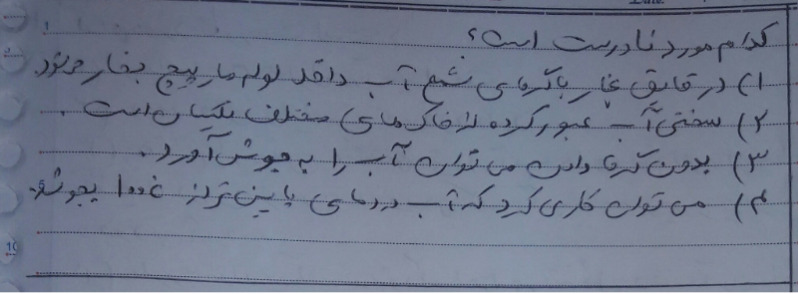 کدام مورد نادرست است؟
۱) در قایق بخار با گرمای شمع آب داخل لوله مارپیچ بخار می‌شود.
۲) سختی آب عبور کرده از خاک های مختلف یکسان است.
۳) بدون گرما دادن می توان آب را به جوش آورد.
۴) می توان کاری کرد که آب در دمای پایین تر از ۱۰۰ بجوشد.
10